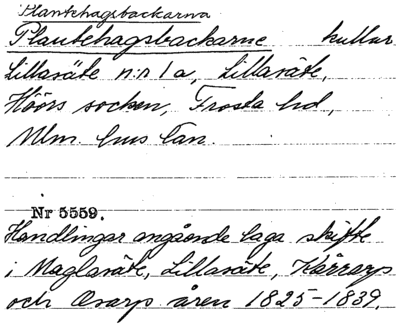 Plantehagsbackarna
Plantehagsbackarne kullar
Lillasäte n:r 1 a, Lillasäte,
Höörs socken, Frosta hd,
Mlm. hus län.
Nr 5559.
Handlingar angående laga skifte
i Maglasäte, Lillasäte, Kårarp
och Orarp åren 1825-1839.